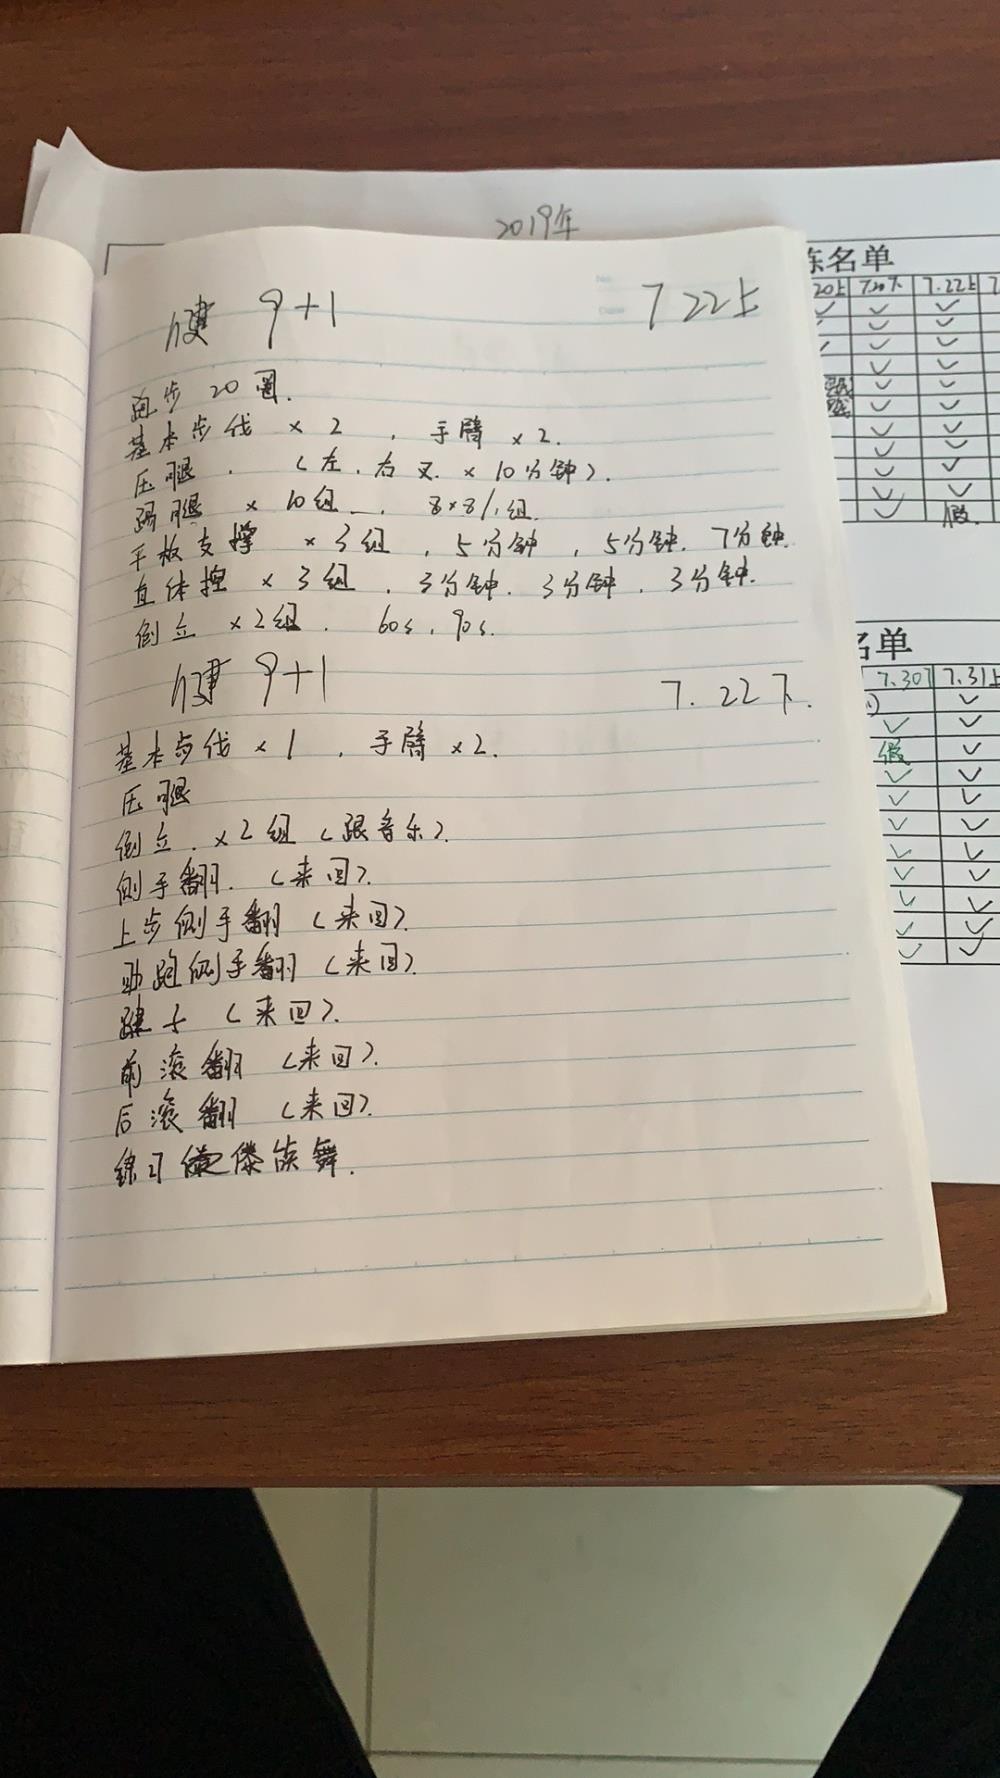 2019年
练名单
20上 7.20下 7.22上 7
假
健 9+1 7.22上
跑步 20圈.
基本步伐 ×2 , 手臂 ×2.
压腿 . (左.右叉 ×10分钟).
踢腿 ×10组 , 8×8/1组.
平板支撑 ×3组 , 5分钟 , 5分钟. 7分钟.
直体控 ×3组 . 3分钟. 3分钟. 3分钟.
倒立 ×2组. 60s , 90s.
健 9+1 7.22下.
基本步伐 ×1 , 手臂 ×2.
压腿
倒立. ×2组 (跟音乐).
侧手翻. (来回).
上步侧手翻 (来回).
助跑侧手翻 (来回).
踺子 (来回).
前滚翻 (来回).
后滚翻 (来回).
练习 傣族舞.
名单
7.30下 7.31上
假